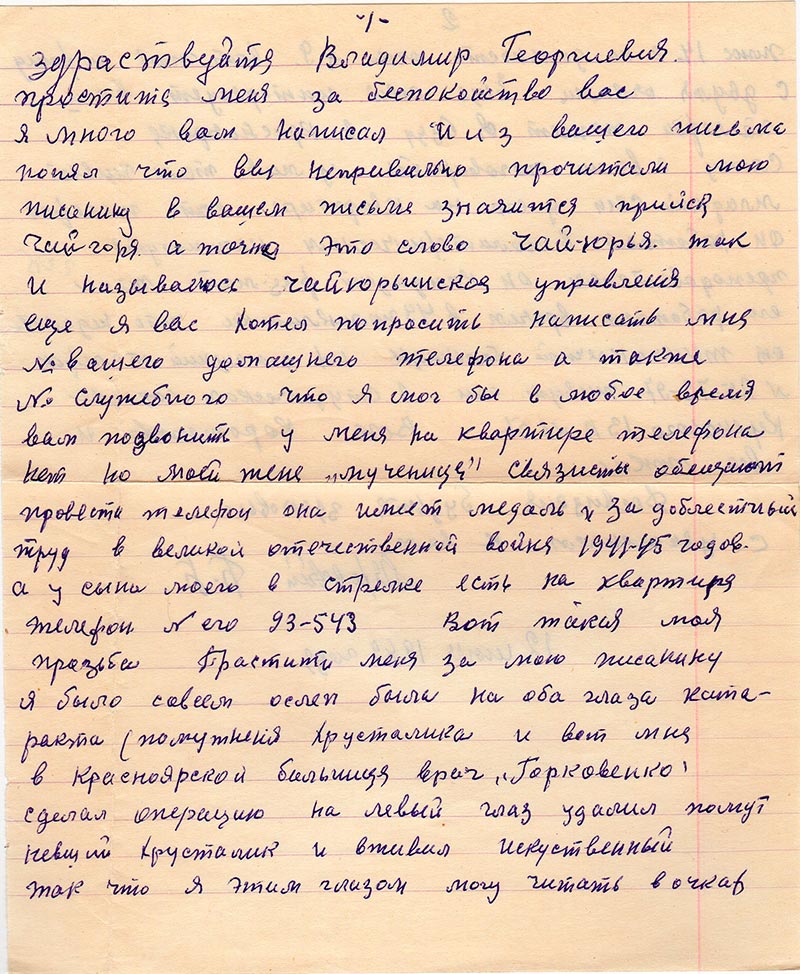 -1-
Здраствуйтя Владимир Георгиевич.
простите меня за беспокойство вас
я много вам написал и из вашего письма
понял что ввы неправильно прочитали мою
писанину в вашем письме значится прииск
Чай-горя. а точно это слово чай-юрья. так
и называлось чайюрьинская управления
еще я вас хотел попросить написать мня
№ вашего домашнего телефона а также
№ служебного что я смог бы в любое время
вам позвонить у меня на квартире телефона
нет но моей жене „мученице" связисты обещают
провести телефон она имет медаль „За доблестный
труд в великой отечественной война 1941-45 годов.
а у сына моего в стрелке есть на квартиря
телефон № его 93-543 Вот такая моя
празьба Прастити меня за мою писанину
я было совсем ослеп была на оба глаза ката-
ракта (помутненя хрусталика и вот мня
в Красноярской больница врач „Горковенко"
сделал операцию на левый глаз удалил помут
невший хрусталик и вживил искуственный
так что я этим глазом могу читать в очках